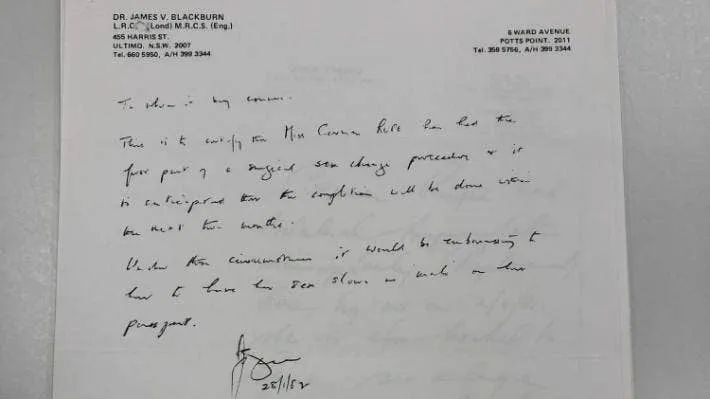 DR. JAMES V. BLACKBURN
L.R.C. (Lond) M.R.C.S. (Eng.)
455 HARRIS ST.
ULTIMO, N.S.W. 2007
Tel. 660 5950, A/H 399 3344
6 WARD AVENUE
POTTS POINT. 2011
Tel. 358 5756, A/H 399 3344
To whom it may concern.
This is to certify that Miss Carmen Rupe has had the
first part of a surgical sex change procedure & it
is anticipated that the completion will be done within
the next two months.
Under these circumstances it would be embarrassing to
her to have her sex shown as male on her
passport.
25/1/82